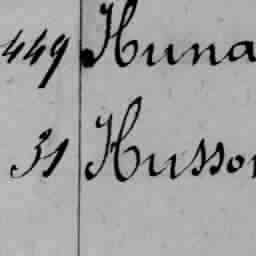 449 Huna
31 Husson